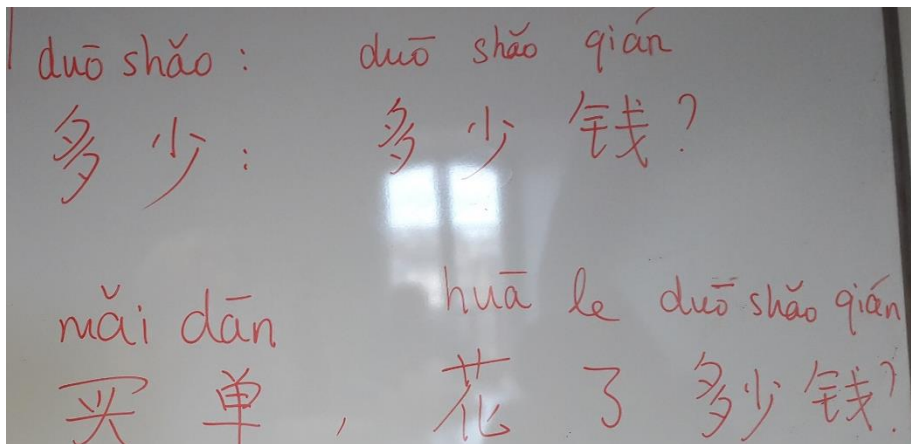 duō shǎo : duō shǎo qián
多少: 多少钱?
mǎi dān huā le duō shǎo qián
买单, 花了多少钱?